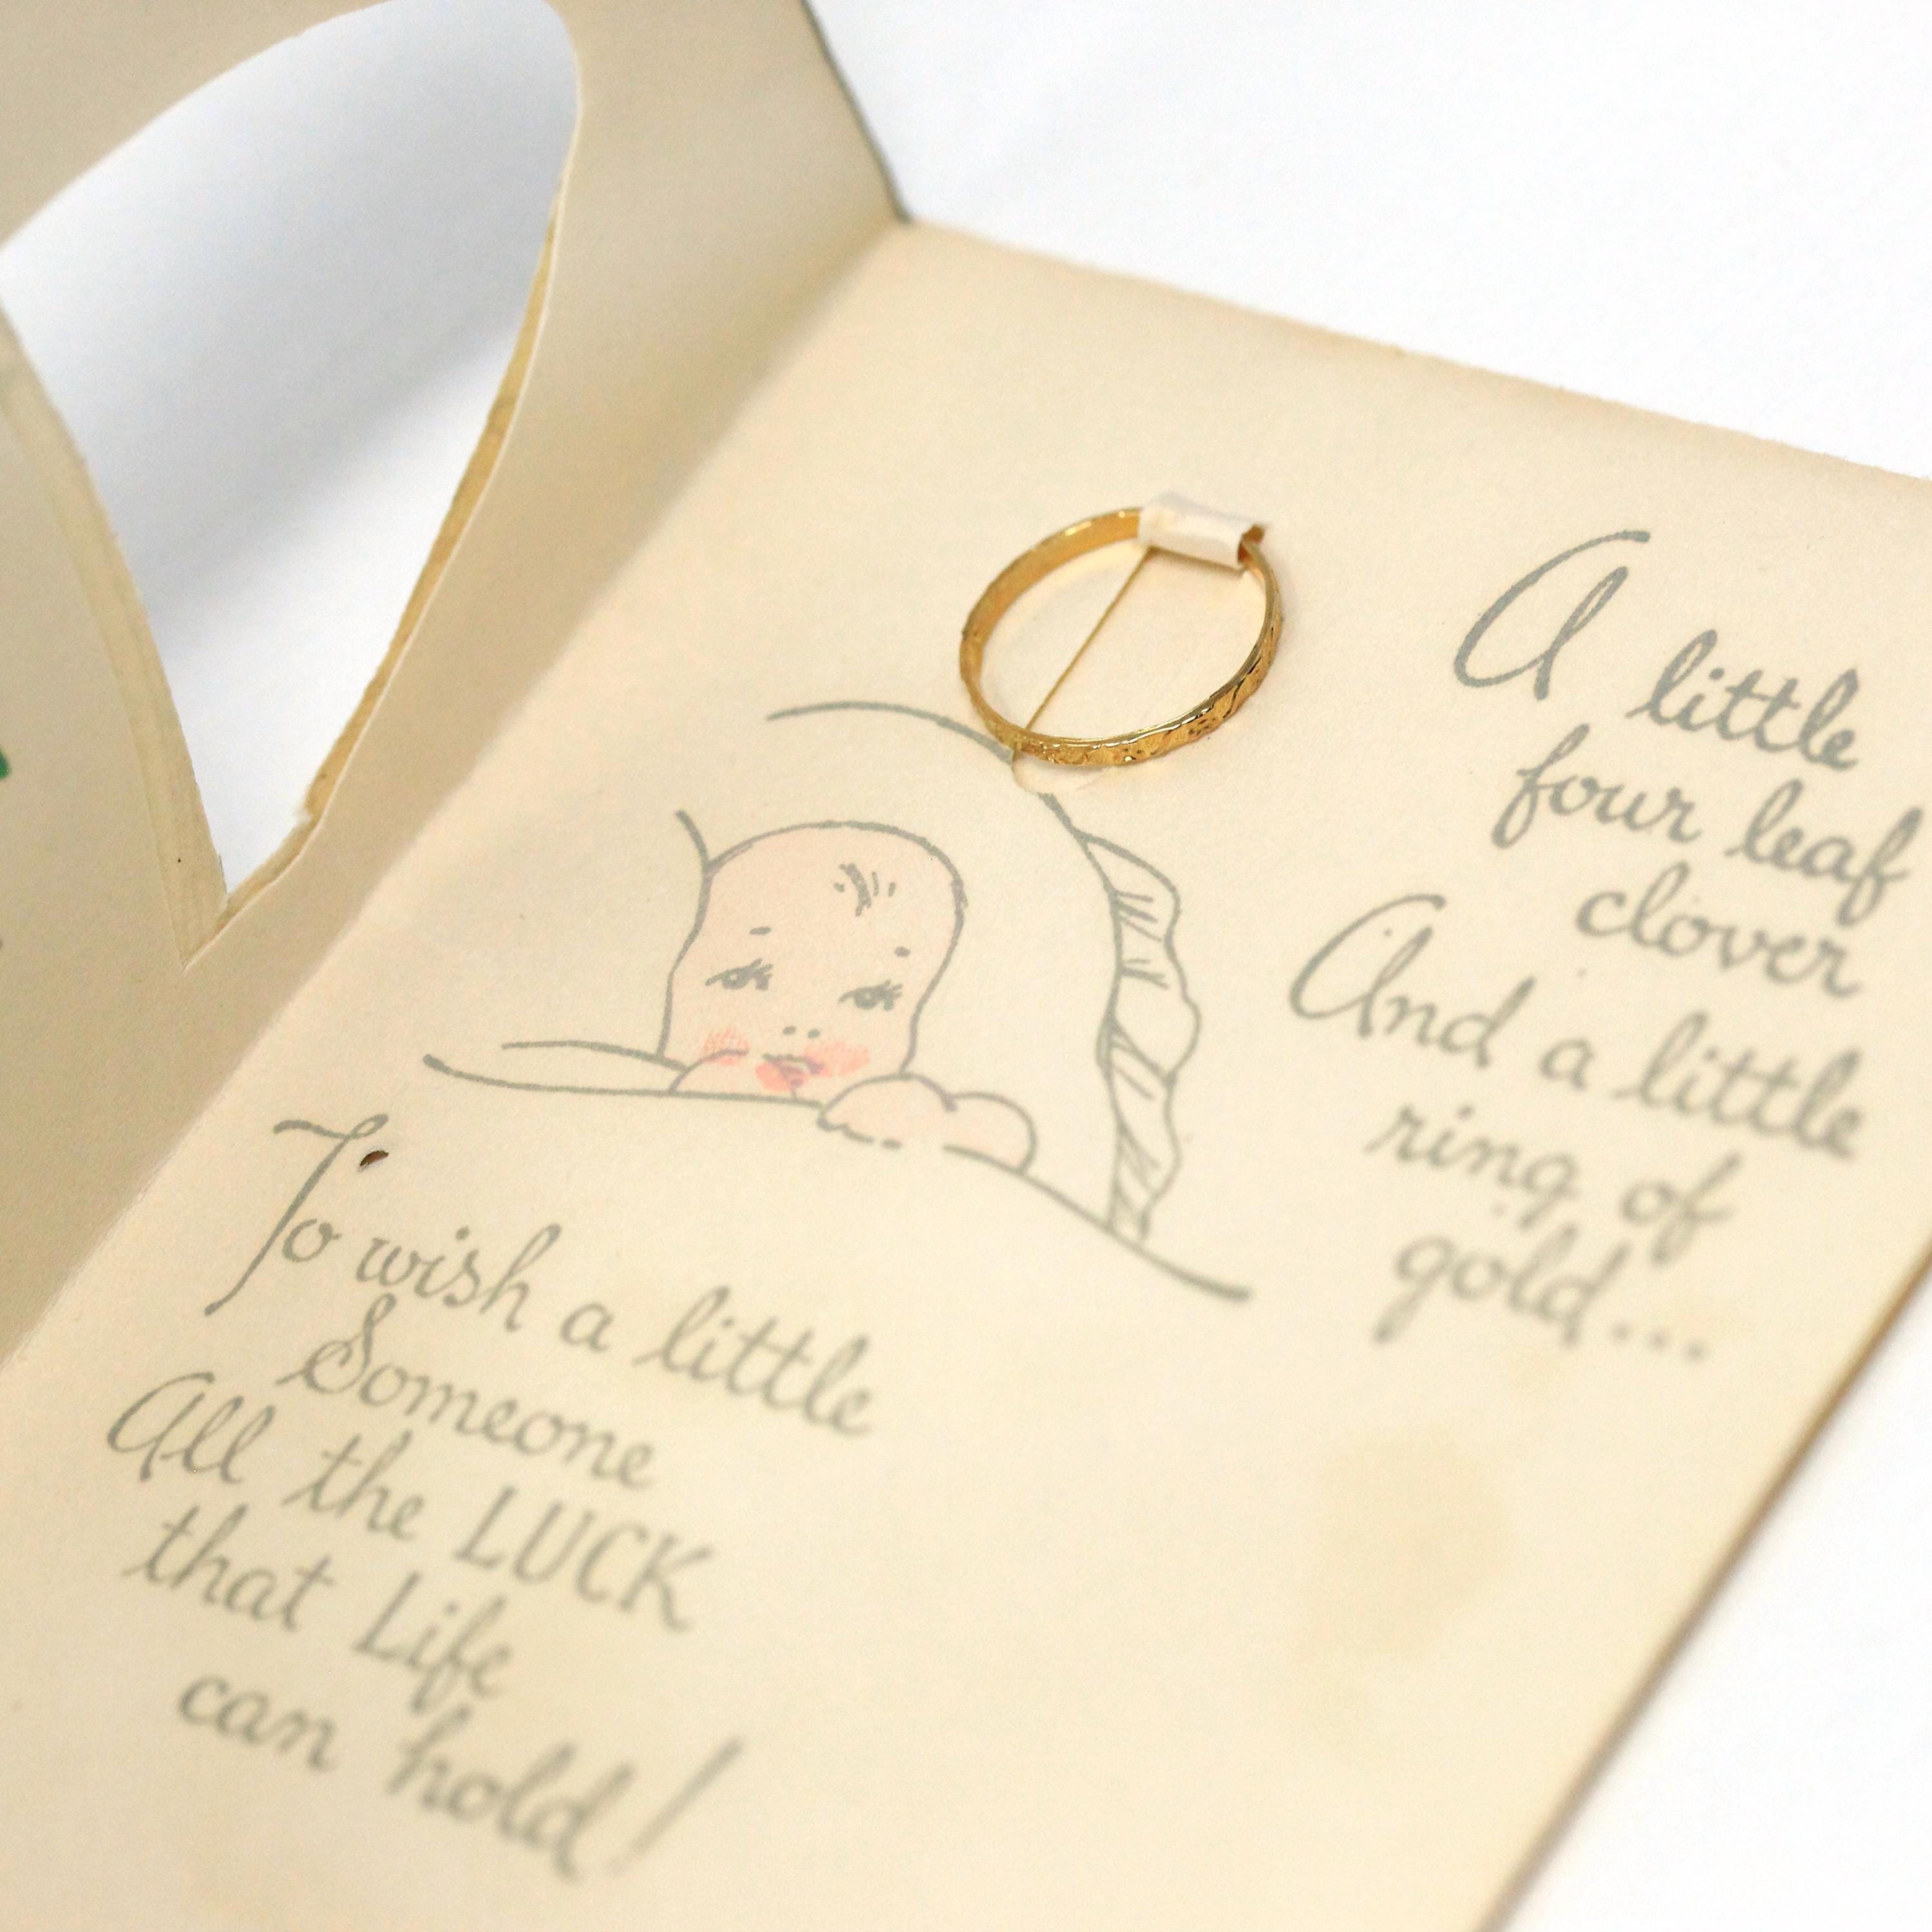 A little
four leaf
clover
And a little
ring of
gold...
To wish a little
Someone
All the LUCK
that Life
can hold!